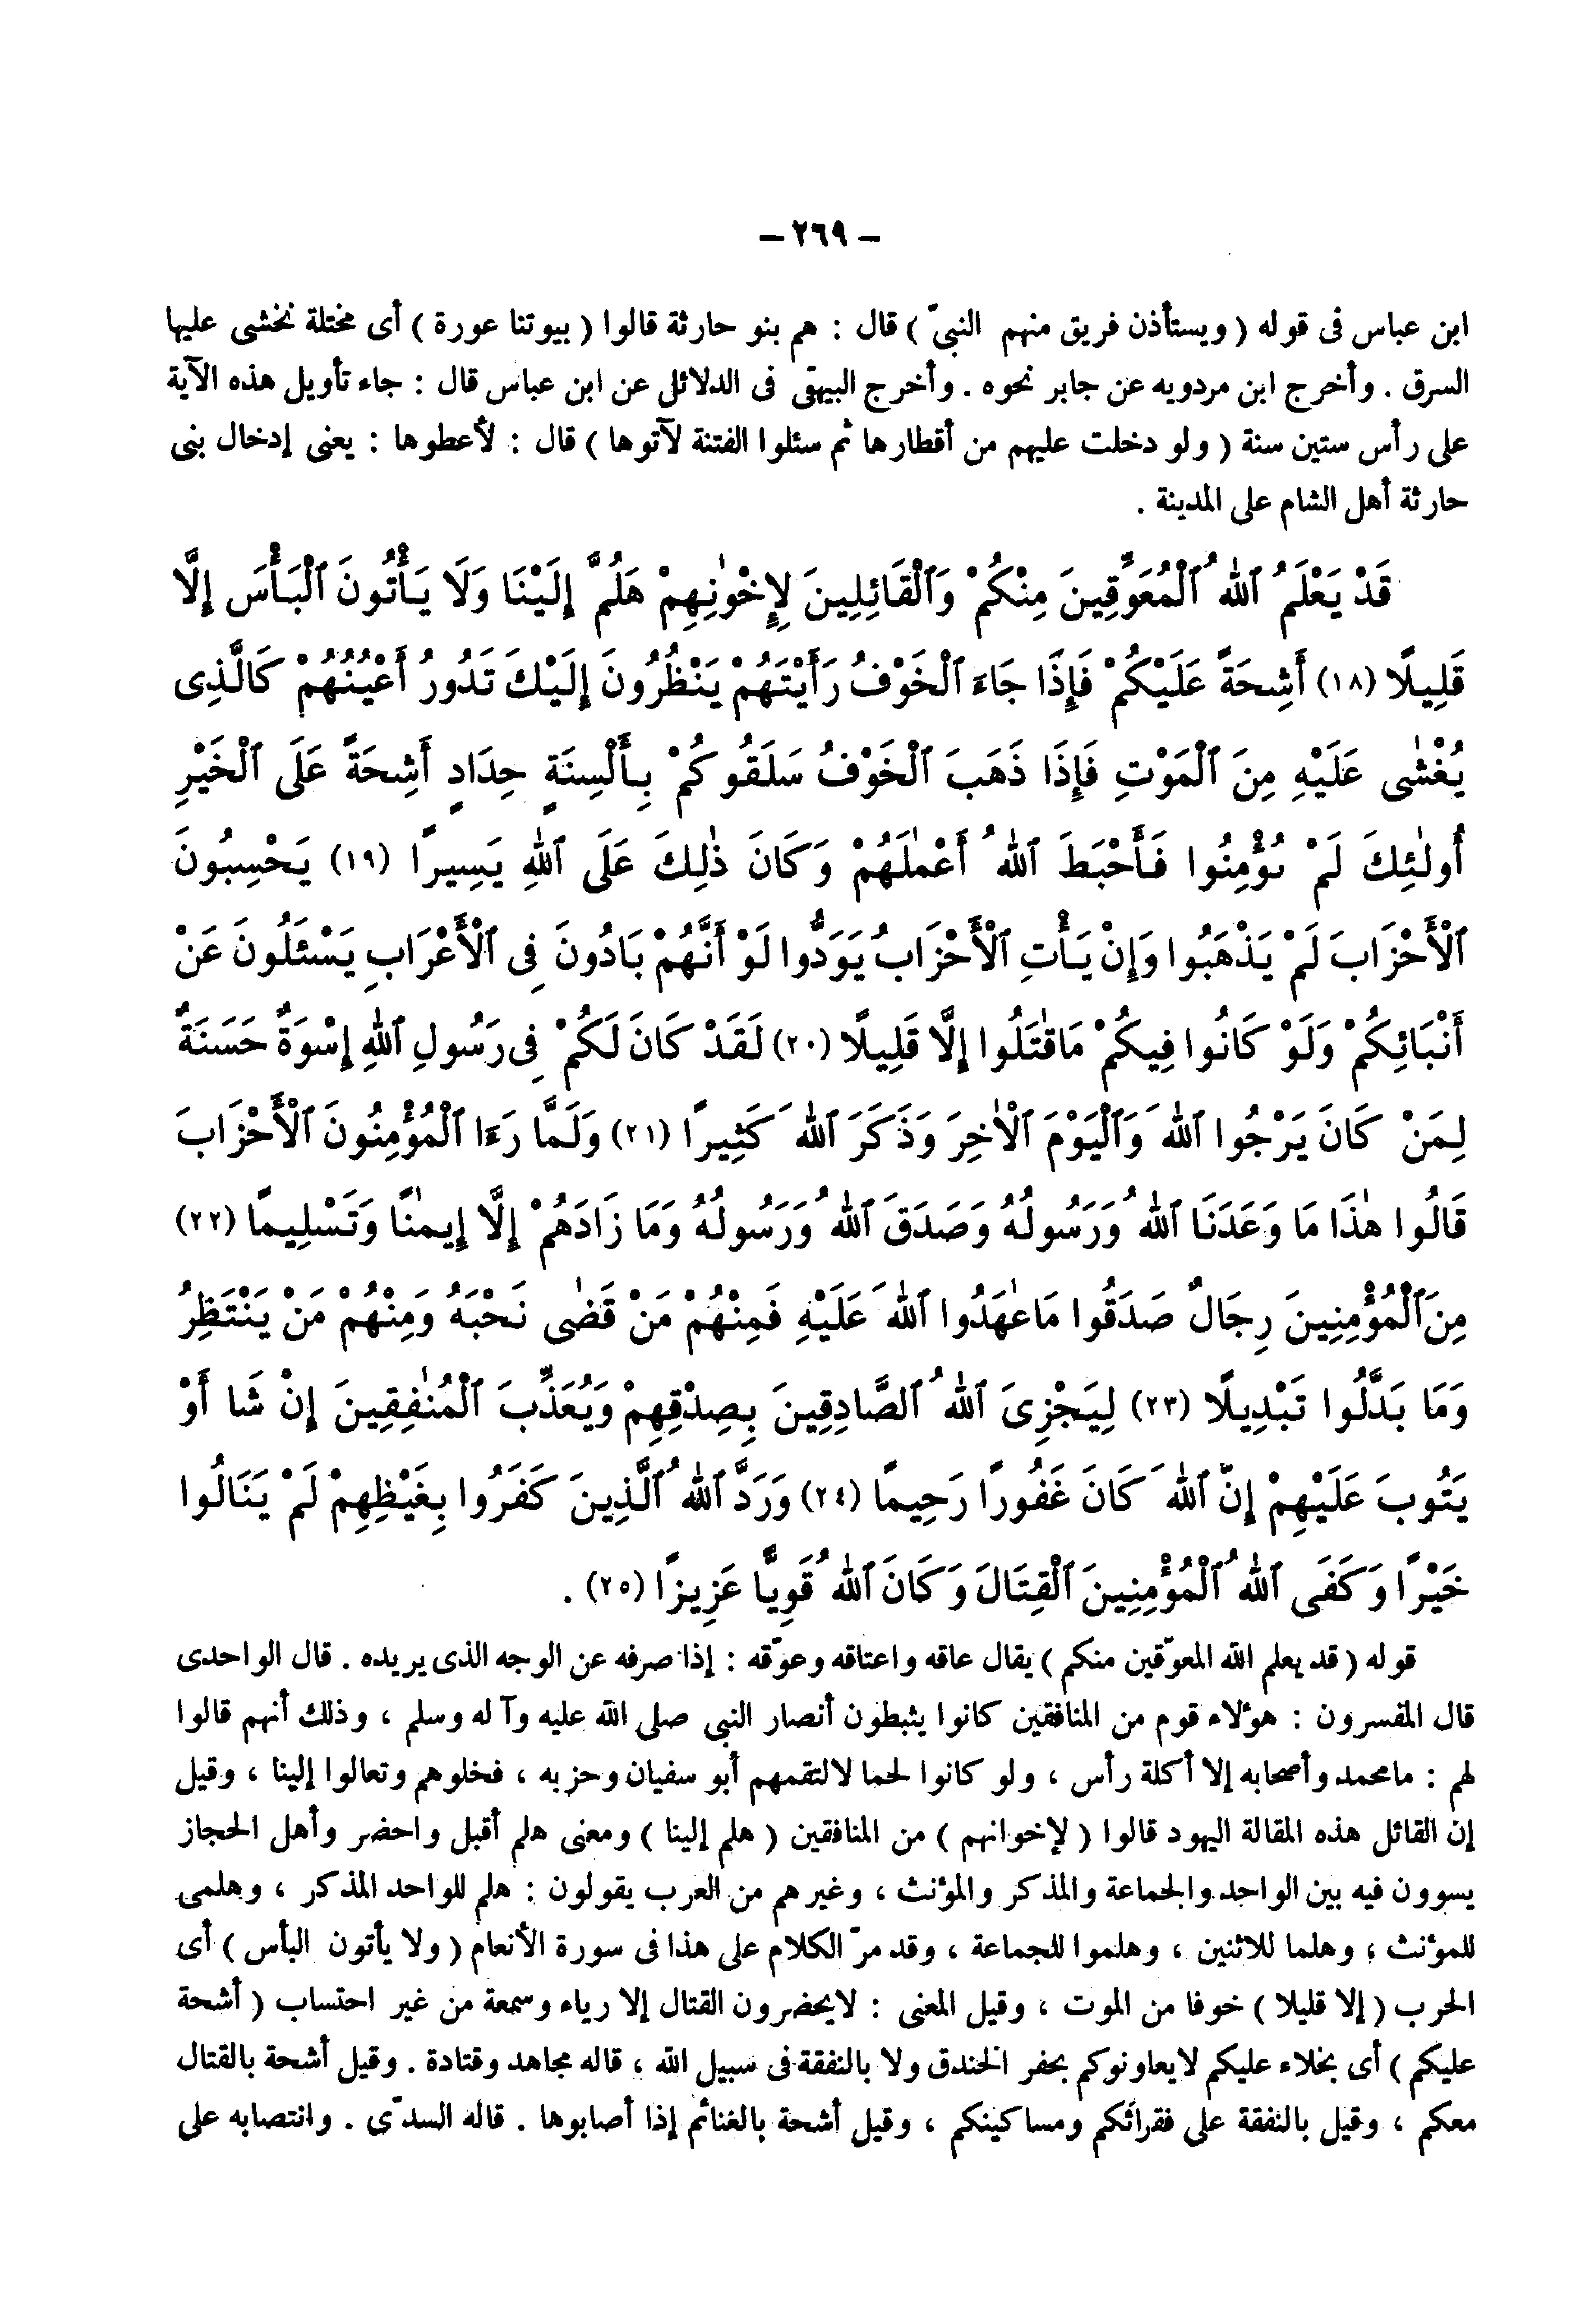 – ٢٦٩ –
ابن عباس فى قوله ( ويستأذن فريق منهم النبىّ ) قال : هم بنو حارثة قالوا ( بيوتنا عورة ) أى مختلة نخشى عليها
السرق . وأخرج ابن مردويه عن جابر نحوه . وأخرج البيهقى فى الدلائل عن ابن عباس قال : جاء تأويل هذه الآية
على رأس ستين سنة ( ولو دخلت عليهم من أقطارها ثم سئلوا الفتنة لآتوها ) قال : لأعطوها : يعنى إدخال بنى
حارثة أهل الشام على المدينة .
قَدْ يَعْلَمُ ٱللهُ ٱلْمُعَوِّقِينَ مِنْكُمْ وَٱلْقَائِلِينَ لِإِخْوٰنِهِمْ هَلُمَّ إِلَيْنَا وَلَا يَأْتُونَ ٱلْبَأْسَ إِلَّا
قَلِيلًا (١٨) أَشِحَةً عَلَيْكُمْ فَإِذَا جَاءَ ٱلْخَوْفُ رَأَيْتَهُمْ يَنْظُرُونَ إِلَيْكَ تَدُورُ أَعْيُنُهُمْ كَالَّذِى
يُغْشٰى عَلَيْهِ مِنَ ٱلْمَوْتِ فَإِذَا ذَهَبَ ٱلْخَوْفُ سَلَقُوكُمْ بِأَلْسِنَةٍ حِدَادٍ أَشِحَةً عَلَى ٱلْخَيْرِ
أُولٰئِكَ لَمْ يُؤْمِنُوا فَأَحْبَطَ ٱللهُ أَعْمٰلَهُمْ وَكَانَ ذٰلِكَ عَلَى ٱللهِ يَسِيرًا (١٩) يَحْسِبُونَ
ٱلْأَحْزَابَ لَمْ يَذْهَبُوا وَإِنْ يَأْتِ ٱلْأَحْزَابُ يَوَدُّوا لَوْ أَنَّهُمْ بَادُونَ فِى ٱلْأَعْرَابِ يَسْئَلُونَ عَنْ
أَنْبَائِكُمْ وَلَوْ كَانُوا فِيكُمْ مَاقٰتَلُوا إِلَّا قَلِيلًا (٢٠) لَقَدْ كَانَ لَكُمْ فِى رَسُولِ ٱللهِ إِسْوَةٌ حَسَنَةٌ
لِمَنْ كَانَ يَرْجُوا ٱللهَ وَٱلْيَوْمَ ٱلْاٰخِرَ وَذَكَرَ ٱللهَ كَثِيرًا (٢١) وَلَمَّا رَءَا ٱلْمُؤْمِنُونَ ٱلْأَحْزَابَ
قَالُوا هٰذَا مَا وَعَدَنَا ٱللهُ وَرَسُولُهُ وَصَدَقَ ٱللهُ وَرَسُولُهُ وَمَا زَادَهُمْ إِلَّا إِيمٰنًا وَتَسْلِيمًا (٢٢)
مِنَ ٱلْمُؤْمِنِينَ رِجَالٌ صَدَقُوا مَاعٰهَدُوا ٱللهَ عَلَيْهِ فَمِنْهُمْ مَنْ قَضٰى نَحْبَهُ وَمِنْهُمْ مَنْ يَنْتَظِرُ
وَمَا بَدَّلُوا تَبْدِيلًا (٢٣) لِيَجْزِىَ ٱللهُ ٱلصَّادِقِينَ بِصِدْقِهِمْ وَيُعَذِّبَ ٱلْمُنٰفِقِينَ إِنْ شَا أَوْ
يَتُوبَ عَلَيْهِمْ إِنّ ٱللهَ كَانَ غَفُورًا رَحِيمًا (٢٤) وَرَدَّ ٱللهُ ٱلَّذِينَ كَفَرُوا بِغَيْظِهِمْ لَمْ يَنَالُوا
خَيْرًا وَكَفَى ٱللهُ ٱلْمُؤْمِنِينَ ٱلْقِتَالَ وَكَانَ ٱللهُ قَوِيًّا عَزِيزًا (٢٥) .
قوله ( قد يعلم الله المعوّقين منكم ) يقال عاقه واعتاقه وعوّقه : إذا صرفه عن الوجه الذى يريده . قال الواحدى
قال المفسرون : هؤلاء قوم من المنافقين كانوا يثبطون أنصار النبى صلى الله عليه وآله وسلم ، وذلك أنهم قالوا
لهم : مامحمد وأصحابه إلا أكلة رأس ، ولو كانوا لحما لالتقمهم أبو سفيان وحزبه ، فخلوهم وتعالوا إلينا ، وقيل
إن القائل هذه المقالة اليهود قالوا ( لإخوانهم ) من المنافقين ( هلم إلينا ) ومعنى هلم أقبل واحضر وأهل الحجاز
يسوون فيه بين الواحد والجماعة والمذكر والمؤنث ، وغيرهم من العرب يقولون : هلم للواحد المذكر ، وهلمى
للمؤنث ، وهلما للاثنين ، وهلموا للجماعة ، وقد مرّ الكلام على هذا فى سورة الأنعام ( ولا يأتون البأس ) أى
الحرب ( إلا قليلا ) خوفا من الموت ، وقيل المعنى : لايحضرون القتال إلا رياء وسمعة من غير احتساب ( أشحة
عليكم ) أى بخلاء عليكم لايعاونوكم بحفر الخندق ولا بالنفقة فى سبيل الله ، قاله مجاهد وقتادة . وقيل أشحة بالقتال
معكم ، وقيل بالنفقة على فقرائكم ومساكينكم ، وقيل أشحة بالغنائم إذا أصابوها . قاله السدّى . وانتصابه على